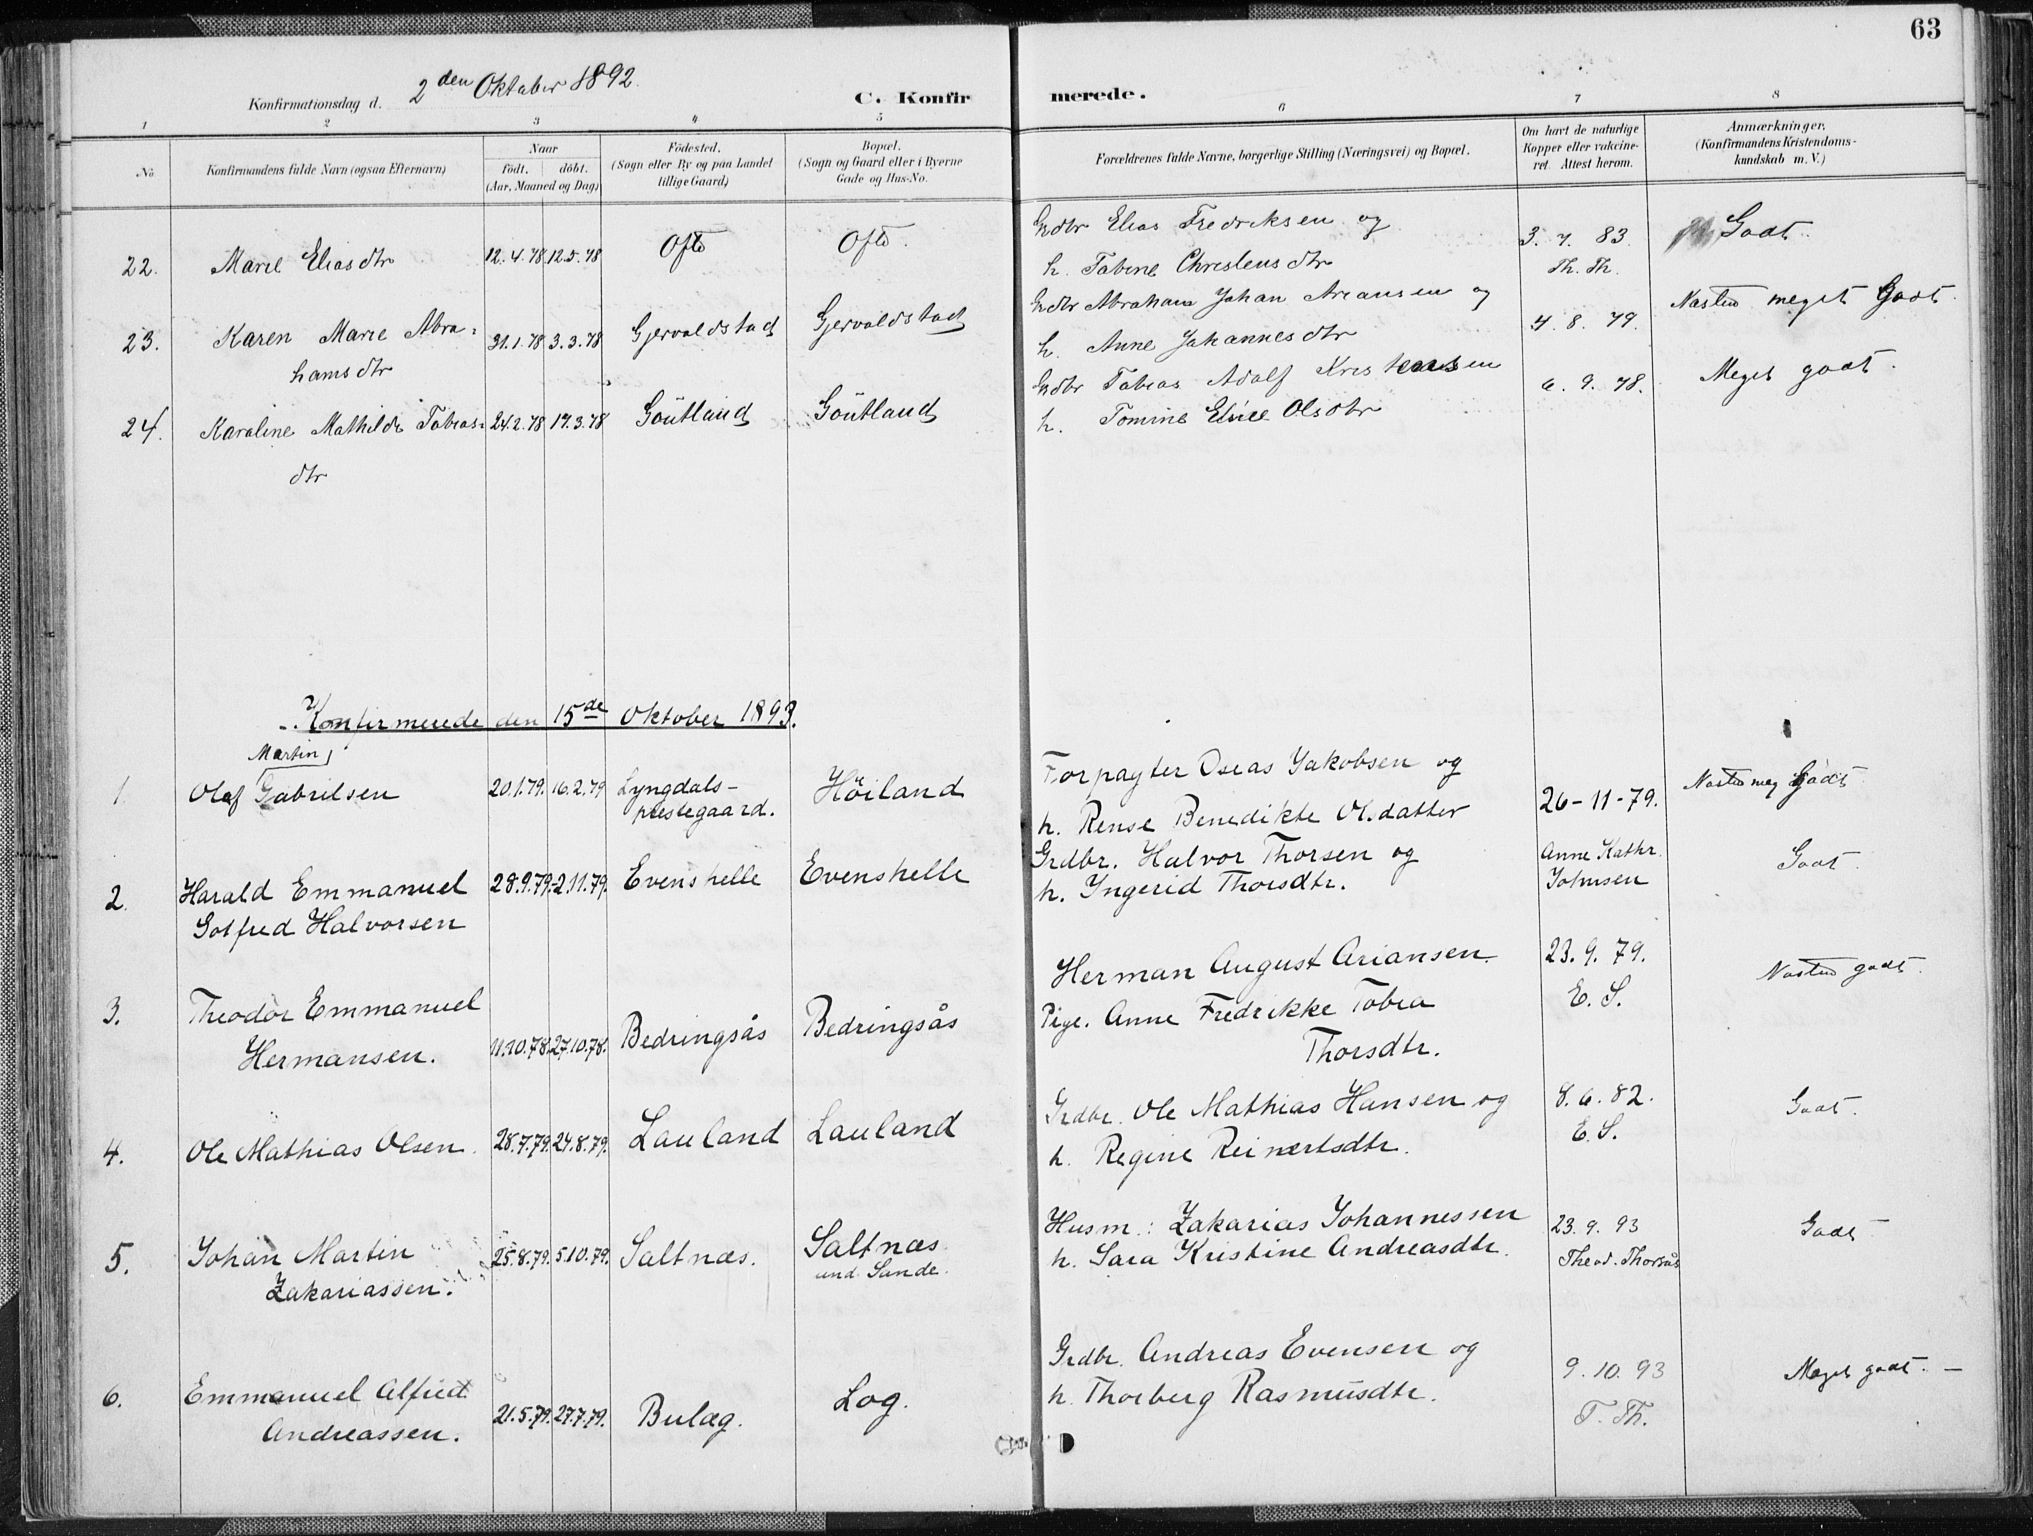 63
Konfirmationsdag d. 2den Oktober 1892.
C. Konfirmerede.
1 2 3 4 5 6 7 8
No.
Konfirmandens fulde Navn (ogsaa Efternavn)
Naar
födt. döbt.
(Aar, Maaned og Dag)
Födested.
(Sogn eller By og paa Landet
tillige Gaard)
Bopæl.
(Sogn og Gaard eller i Byerne
Gade og Hus-No.
Forældrenes fulde Navne, borgerlige Stilling (Næringsvei) og Bopæl.
Om havt de naturlige
Kopper eller vakcine-
ret. Attest herom.
Anmærkninger.
(Konfirmandens Kristendoms-
kundskab m. V.)
22. Marie Eliasdtr 12.4.78 12.5.78 Ofte Ofte. Gdbr Elias Fredriksen og 3. 7. 83. Godt.
h. Tabine Christensdtr Th. Th.
23. Karen Marie Abra- 31.1.78 3.3.78 Gjervoldstad Gjervoldstad Gdbr Abraham Johan Ariansen og 4. 8. 79. Næsten meget Godt.
hamsdtr h. Anne Johannesdtr
24. Karaline Mathilde Tobias- 24.2.78 17.3.78 Goütland Goütland Gdbr Tobias Adolf Kristensen 6. 9. 78. Meget godt.
dtr h. Tomine Elise Olsdtr
Konfirmerede den 15de Oktober 1893.
Martin
1. Olaf Gabrilsen 20.1.79. 16.2.79 Lyngdals- Höiland Forpagter Oseas Jakobsen og 26-11-79. Næsten meg Godt
prestegaard. h. Rense Benedikte Ol.datter
2. Harald Emmanuel 28.9.79. 2.11.79. Evenshelle Evenshelle Grdbr. Halvor Thorsen og Anne Kathr. Godt.
Gotfred Halvorsen h. Ingerid Thorsdtr. Johnsen
3. Theodor Emmanuel Herman August Ariansen. 23. 9. 79. Næsten godt.
Hermansen. 11.10.78. 27.10.78. Bedringsås Bedringsås Pige. Anne Fredrikke Tobea E. S.
Thorsdtr.
4. Ole Mathias Olsen. 28.7.79. 24.8.79. Lauland Lauland Grdbr. Ole Mathias Hansen og 8. 6. 82. Godt.
h. Regine Reinertsdtr. E. S.
5. Johan Martin 25.8.79. 5.10.79. Saltnæs. Saltnæs. Husm.: Zakarias Johannessen 23. 9. 93 Godt
Zakariassen. und. Sande. h. Sara Kristine Andreasdtr. Theod. Thorsås
6. Emmanuel Alfred 21.5.79. 27.7.79. Bulæg. Log. Grdbr. Andreas Evensen og 9. 10. 93 Meget godt. —
Andreassen. h. Thorberg Rasmusdtr. T. Th.